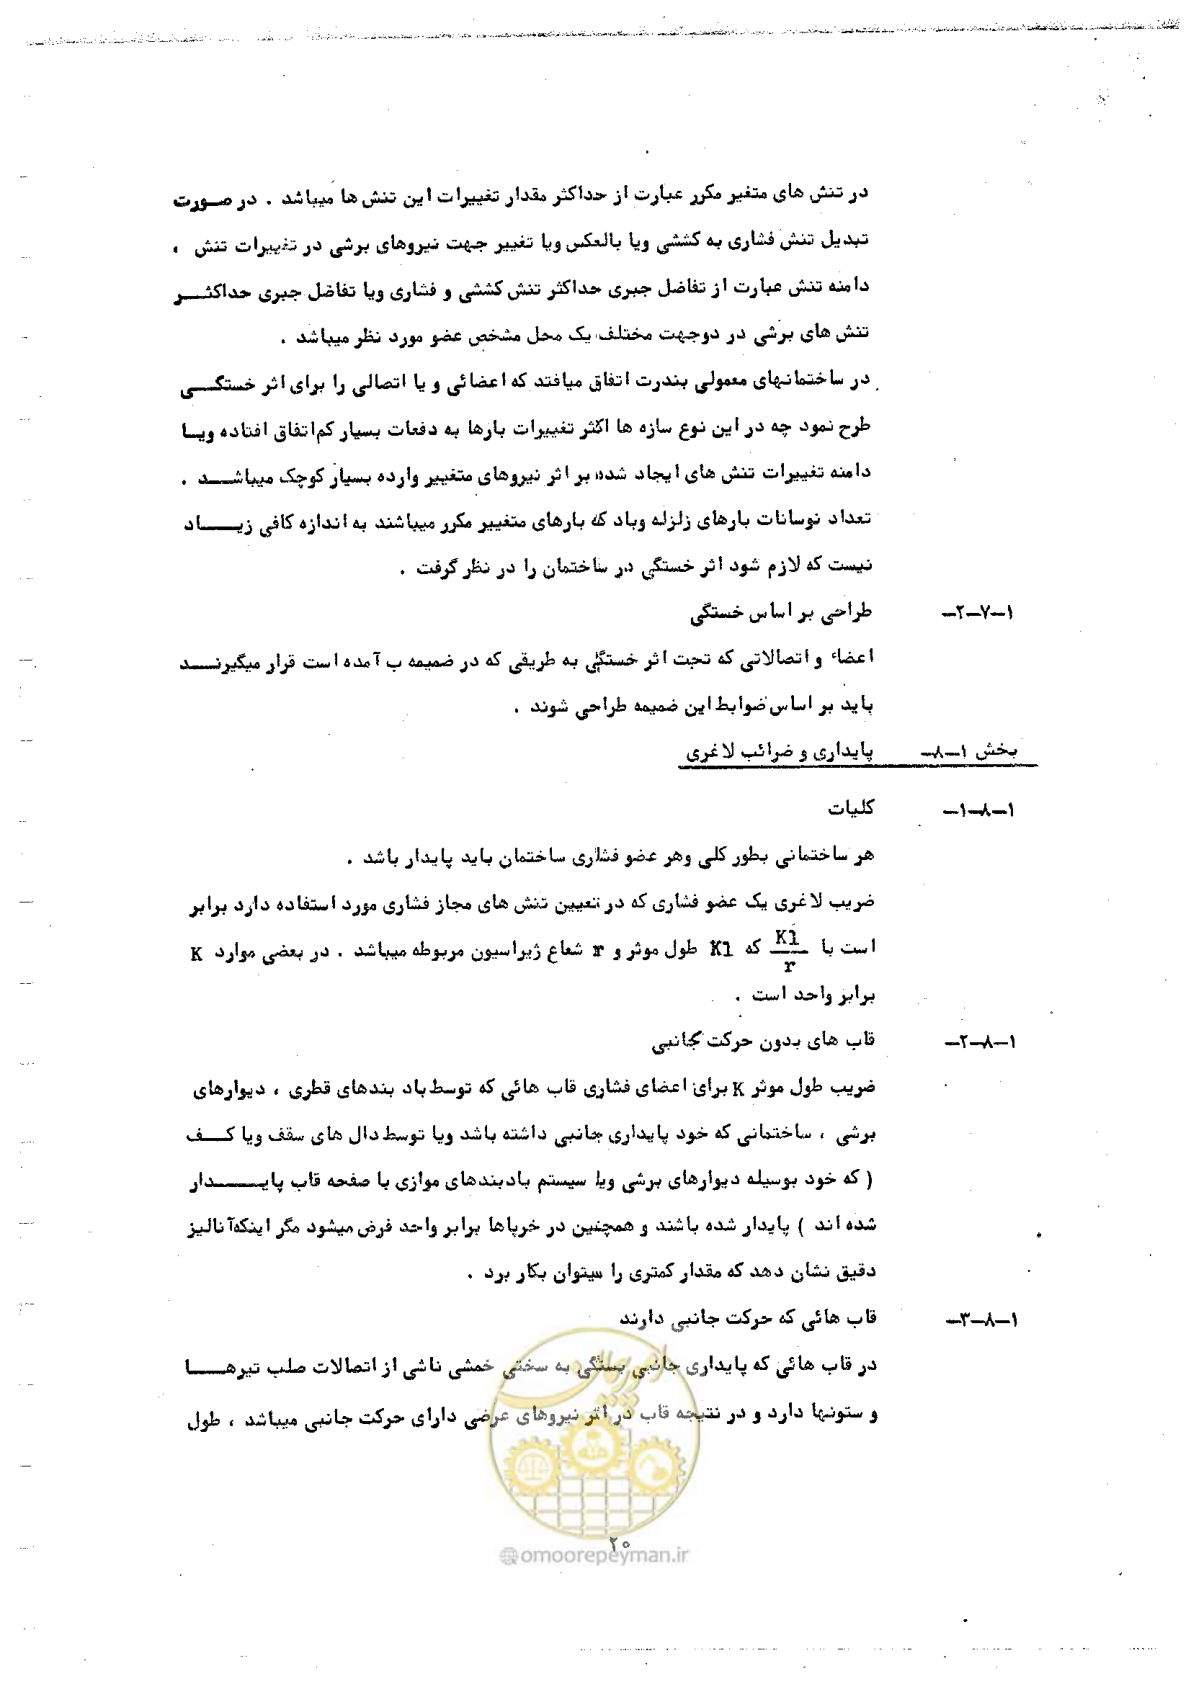 در تنش های متغیر مکرر عبارت از حداکثر مقدار تغییرات این تنش ها میباشد . در صورت
تبدیل تنش فشاری به کششی ویا بالعکس ویا تغییر جهت نیروهای برشی در تغییرات تنش ،
دامنه تنش عبارت از تفاضل جبری حداکثر تنش کششی و فشاری ویا تفاضل جبری حداکثر
تنش های برشی در دوجهت مختلف یک محل مشخص عضو مورد نظر میباشد .
در ساختمانهای معمولی بندرت اتفاق میافتد که اعضائی و یا اتصالی را برای اثر خستگی
طرح نمود چه در این نوع سازه ها اکثر تغییرات بارها به دفعات بسیار کم اتفاق افتاده ویا
دامنه تغییرات تنش های ایجاد شده بر اثر نیروهای متغییر وارده بسیار کوچک میباشد .
تعداد نوسانات بارهای زلزله وباد که بارهای متغییر مکرر میباشند به اندازه کافی زیاد
نیست که لازم شود اثر خستگی در ساختمان را در نظر گرفت .
۱-۷-۲- طراحی بر اساس خستگی
اعضاء و اتصالاتی که تحت اثر خستگی به طریقی که در ضمیمه ب آمده است قرار میگیرند
باید بر اساس ضوابط این ضمیمه طراحی شوند .
بخش ۱-۸- پایداری و ضرائب لاغری
۱-۸-۱- کلیات
هر ساختمانی بطور کلی وهر عضو فشاری ساختمان باید پایدار باشد .
ضریب لاغری یک عضو فشاری که در تعیین تنش های مجاز فشاری مورد استفاده دارد برابر
است با Kl/r که Kl طول موثر و r شعاع ژیراسیون مربوطه میباشد . در بعضی موارد K
برابر واحد است .
۱-۸-۲- قاب های بدون حرکت جانبی
ضریب طول موثر K برای اعضای فشاری قاب هائی که توسط باد بندهای قطری ، دیوارهای
برشی ، ساختمانی که خود پایداری جانبی داشته باشد ویا توسط دال های سقف ویا کف
( که خود بوسیله دیوارهای برشی ویا سیستم بادبندهای موازی با صفحه قاب پایدار
شده اند ) پایدار شده باشند و همچنین در خرپاها برابر واحد فرض میشود مگر اینکه آنالیز
دقیق نشان دهد که مقدار کمتری را میتوان بکار برد .
۱-۸-۳- قاب هائی که حرکت جانبی دارند
در قاب هائی که پایداری جانبی بستگی به سختی خمشی ناشی از اتصالات صلب تیرها
و ستونها دارد و در نتیجه قاب در اثر نیروهای عرضی دارای حرکت جانبی میباشد ، طول
امور پیمان
۲۰
@omoorepeyman.ir